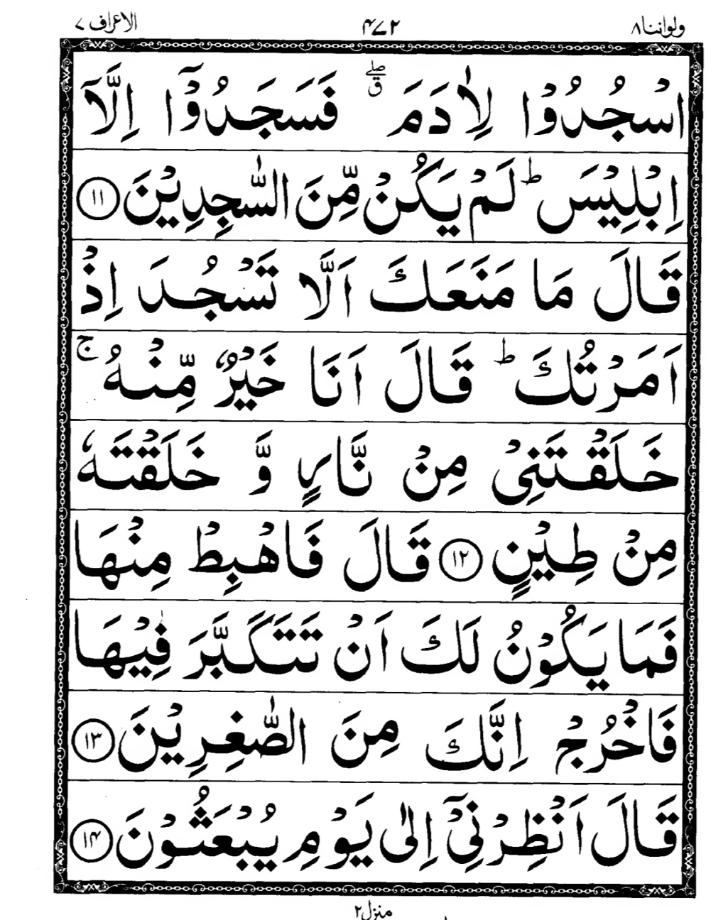 ولواننا٨ ٤٧٢ الاعراف ٧
اسْجُدُوْا لِاٰدَمَ ۖۗ فَسَجَدُوْۤا اِلَّاۤ
اِبْلِيْسَ ؕ لَمْ يَكُنْ مِّنَ السّٰجِدِيْنَ ﴿١١﴾
قَالَ مَا مَنَعَكَ اَلَّا تَسْجُدَ اِذْ
اَمَرْتُكَ ؕ قَالَ اَنَا خَيْرٌ مِّنْهُ ۚ
خَلَقْتَنِيْ مِنْ نَّارٍ وَّ خَلَقْتَهٗ
مِنْ طِيْنٍ ﴿١٢﴾ قَالَ فَاهْبِطْ مِنْهَا
فَمَا يَكُوْنُ لَكَ اَنْ تَتَكَبَّرَ فِيْهَا
فَاخْرُجْ اِنَّكَ مِنَ الصّٰغِرِيْنَ ﴿١٣﴾
قَالَ اَنْظِرْنِيْۤ اِلٰى يَوْمِ يُبْعَثُوْنَ ﴿١٤﴾
منزل٢